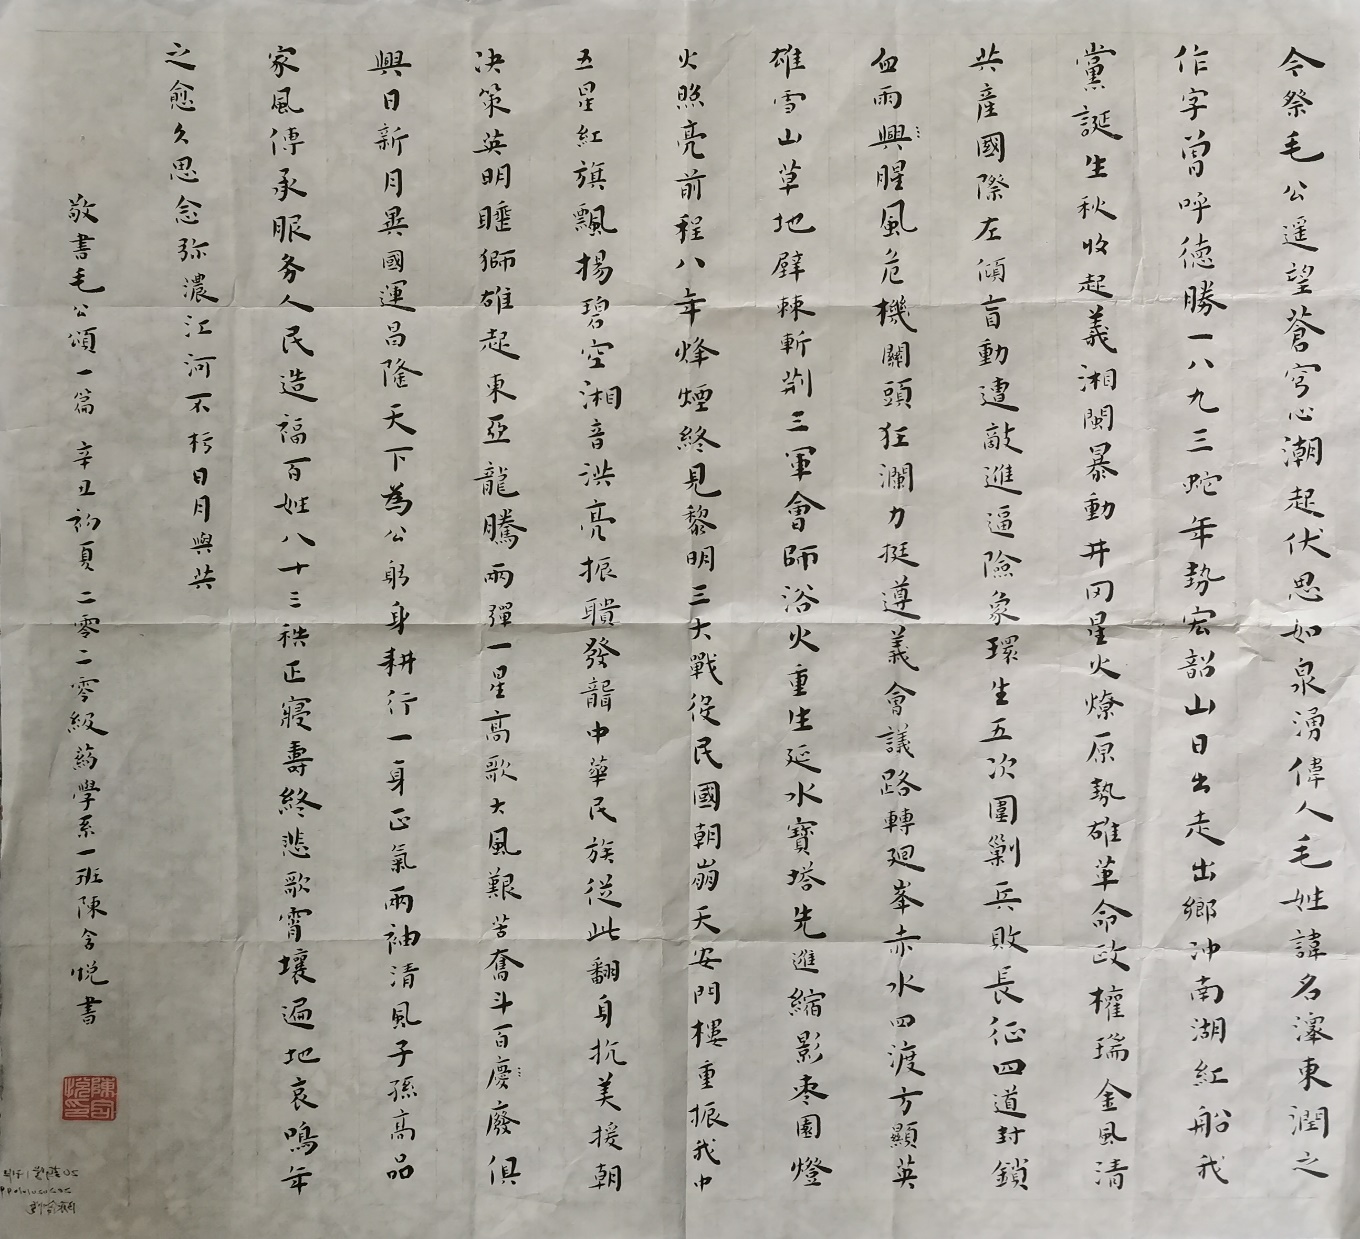 今祭毛公遥望蒼穹心潮起伏思如泉湧偉人毛姓諱名澤東潤之
作字曾呼德勝一八九三蛇年勢宏韶山日出走出鄉冲南湖紅船我
黨誕生秋收起義湘閩暴動井冈星火燎原勢雄革命政權瑞金風清
共產國際左傾盲動遭敵進逼險象環生五次圍剿兵敗長征四道封鎖
血雨興腥風危機關頭狂瀾力挺遵義會議路轉廻峯赤水四渡方顯英
雄雪山草地劈棘斬荊三軍會師浴火重生延水寶塔先進縮影枣園燈
火照亮前程八年烽煙終見黎明三大戰役民國朝崩天安門樓重振我中
五星紅旗飄揚碧空湘音洪亮振聵發聾中華民族從此翻身抗美援朝
決策英明睡獅雄起東亞龍騰兩彈一星高歌大風艱苦奮斗百慶廢俱
興日新月異國運昌隆天下為公躬身耕行一身正氣兩袖清風子孫高品
家風傳承服务人民造福百姓八十三秩正寢壽終悲歌霄壤遍地哀鳴年
之愈久思念弥濃江河不朽日月與共
敬書毛公頌一篇 辛丑初夏 二零二零級药學系一班陳含悦書